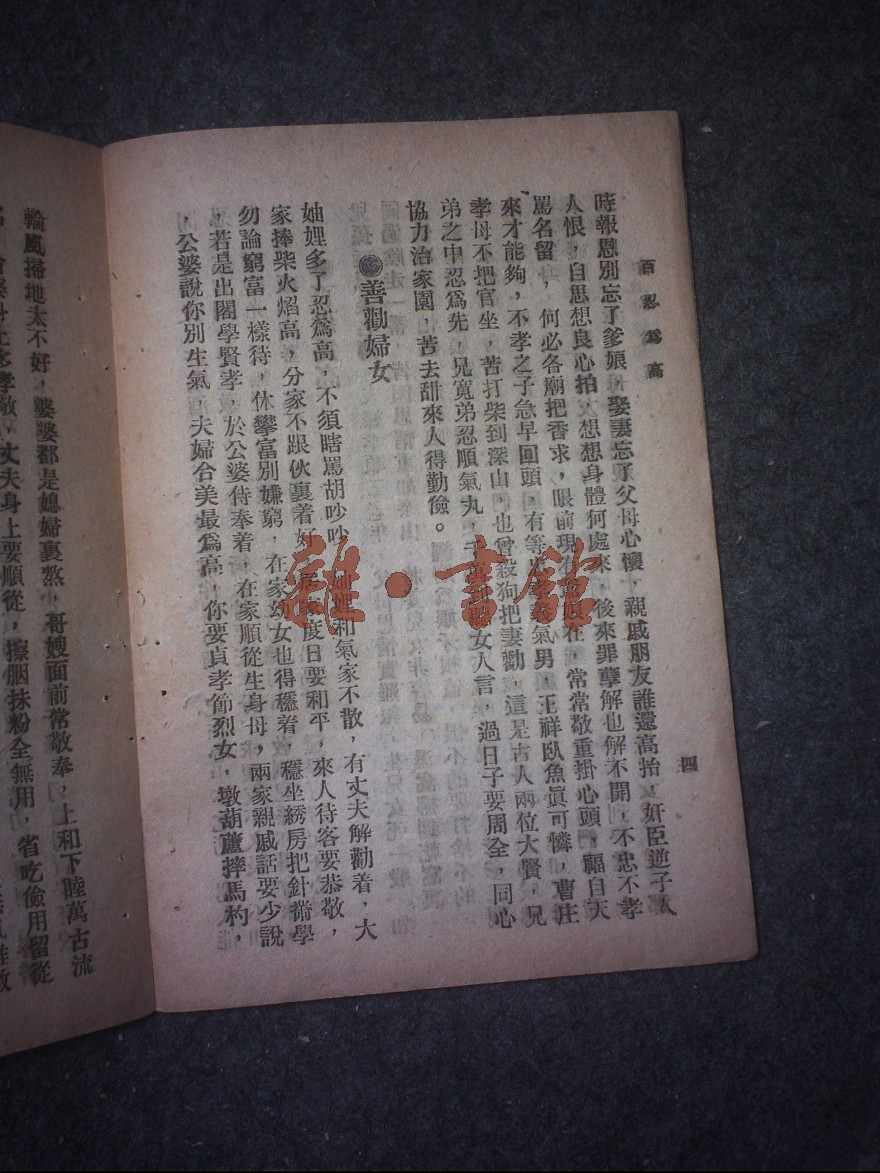 百忍爲高
四
時報恩別忘了爹娘，娶妻忘了父母心懷，親戚朋友誰還高抬，奸臣逆子人
人恨，自思想良心拍，想想身體何處來，後來罪孽解也解不開，不忠不孝
罵名留，何必各廟把香求，眼前現有爹娘在，常常敬重掛心頭，福自天
來才能夠，不孝之子急早回頭，有等 氣男，王祥臥魚眞可憐，曹庄
孝母不把官坐，苦打柴到深山，也曾殺狗把妻勸，這是古人兩位大賢，兄
弟之中忍爲先，兄寬弟忍順氣丸， 女人言，過日子要周全，同心
協力治家園，苦去甜來人得勤儉。
善勸婦女
妯娌多了忍爲高，不須瞎罵胡吵吵，妯娌和氣家不散，有丈夫解勸着，大
家捧柴火焰高，分家不跟伙裏着好，居家度日要和平，來人待客要恭敬，
勿論窮富一樣待，休攀富別嫌窮，在家幼女也得穩着，穩坐綉房把針黹學
，若是出閣學賢孝，於公婆侍奉着，在家順從生身母，兩家親戚話要少說
，公婆說你別生氣，夫婦合美最爲高，你要貞孝節烈女，墩葫蘆摔馬杓，
輪風掃地太不好，婆婆都是媳婦裏熬，哥嫂面前常敬奉，上和下睦萬古流
孝敬，丈夫身上要順從，擦胭抹粉全無用，省吃儉用留從
雜·書館